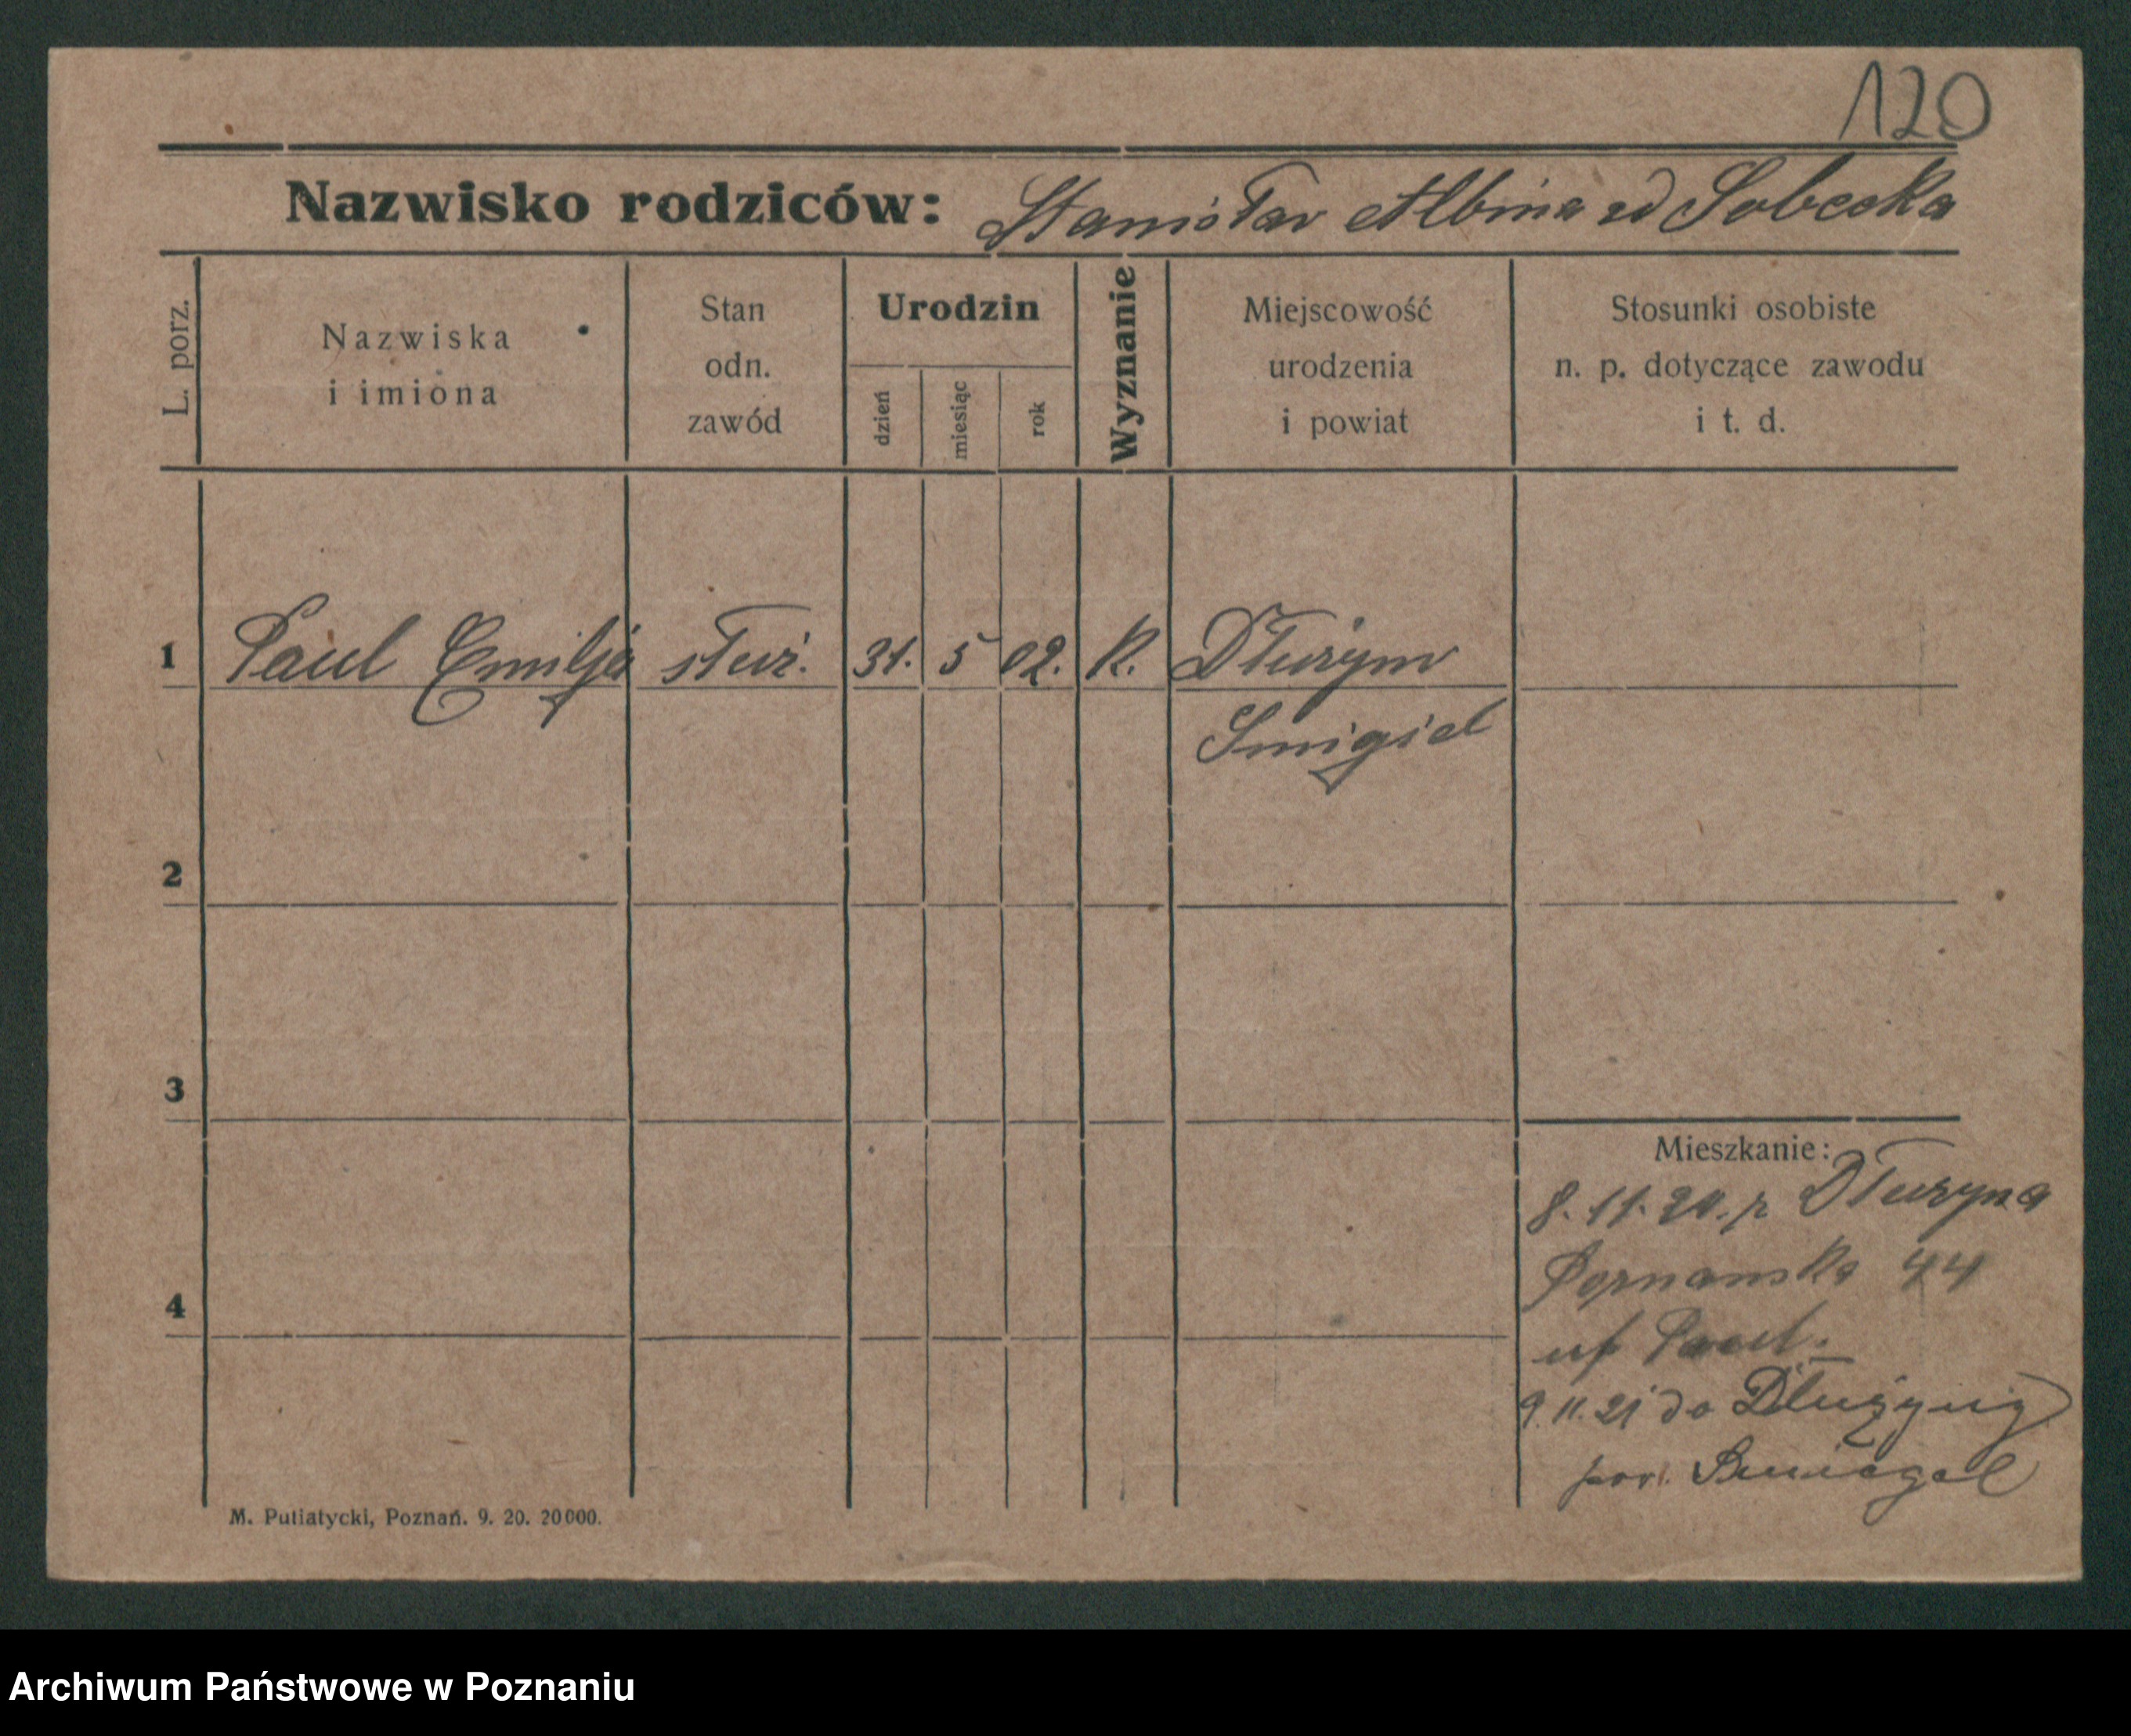 120
Nazwisko rodziców: Stanisław Albina zd Sobecka
L. porz.
Nazwiska
i imiona
Stan
odn.
zawód
Urodzin
dzień
miesiąc
rok
Wyznanie
Miejscowość
urodzenia
i powiat
Stosunki osobiste
n. p. dotyczące zawodu
i t. d.
1 Paul Emilja służ. 31. 5 02. K. Dłużyn
Smigiel
2
3
4
Mieszkanie:
8. 11. 20. z Dłużyna
Poznanska 44
Paul.
9. 11. 21 do Dłużyny
pow. Smiegel
M. Putiatycki, Poznań. 9. 20. 20000.
Archiwum Państwowe w Poznaniu